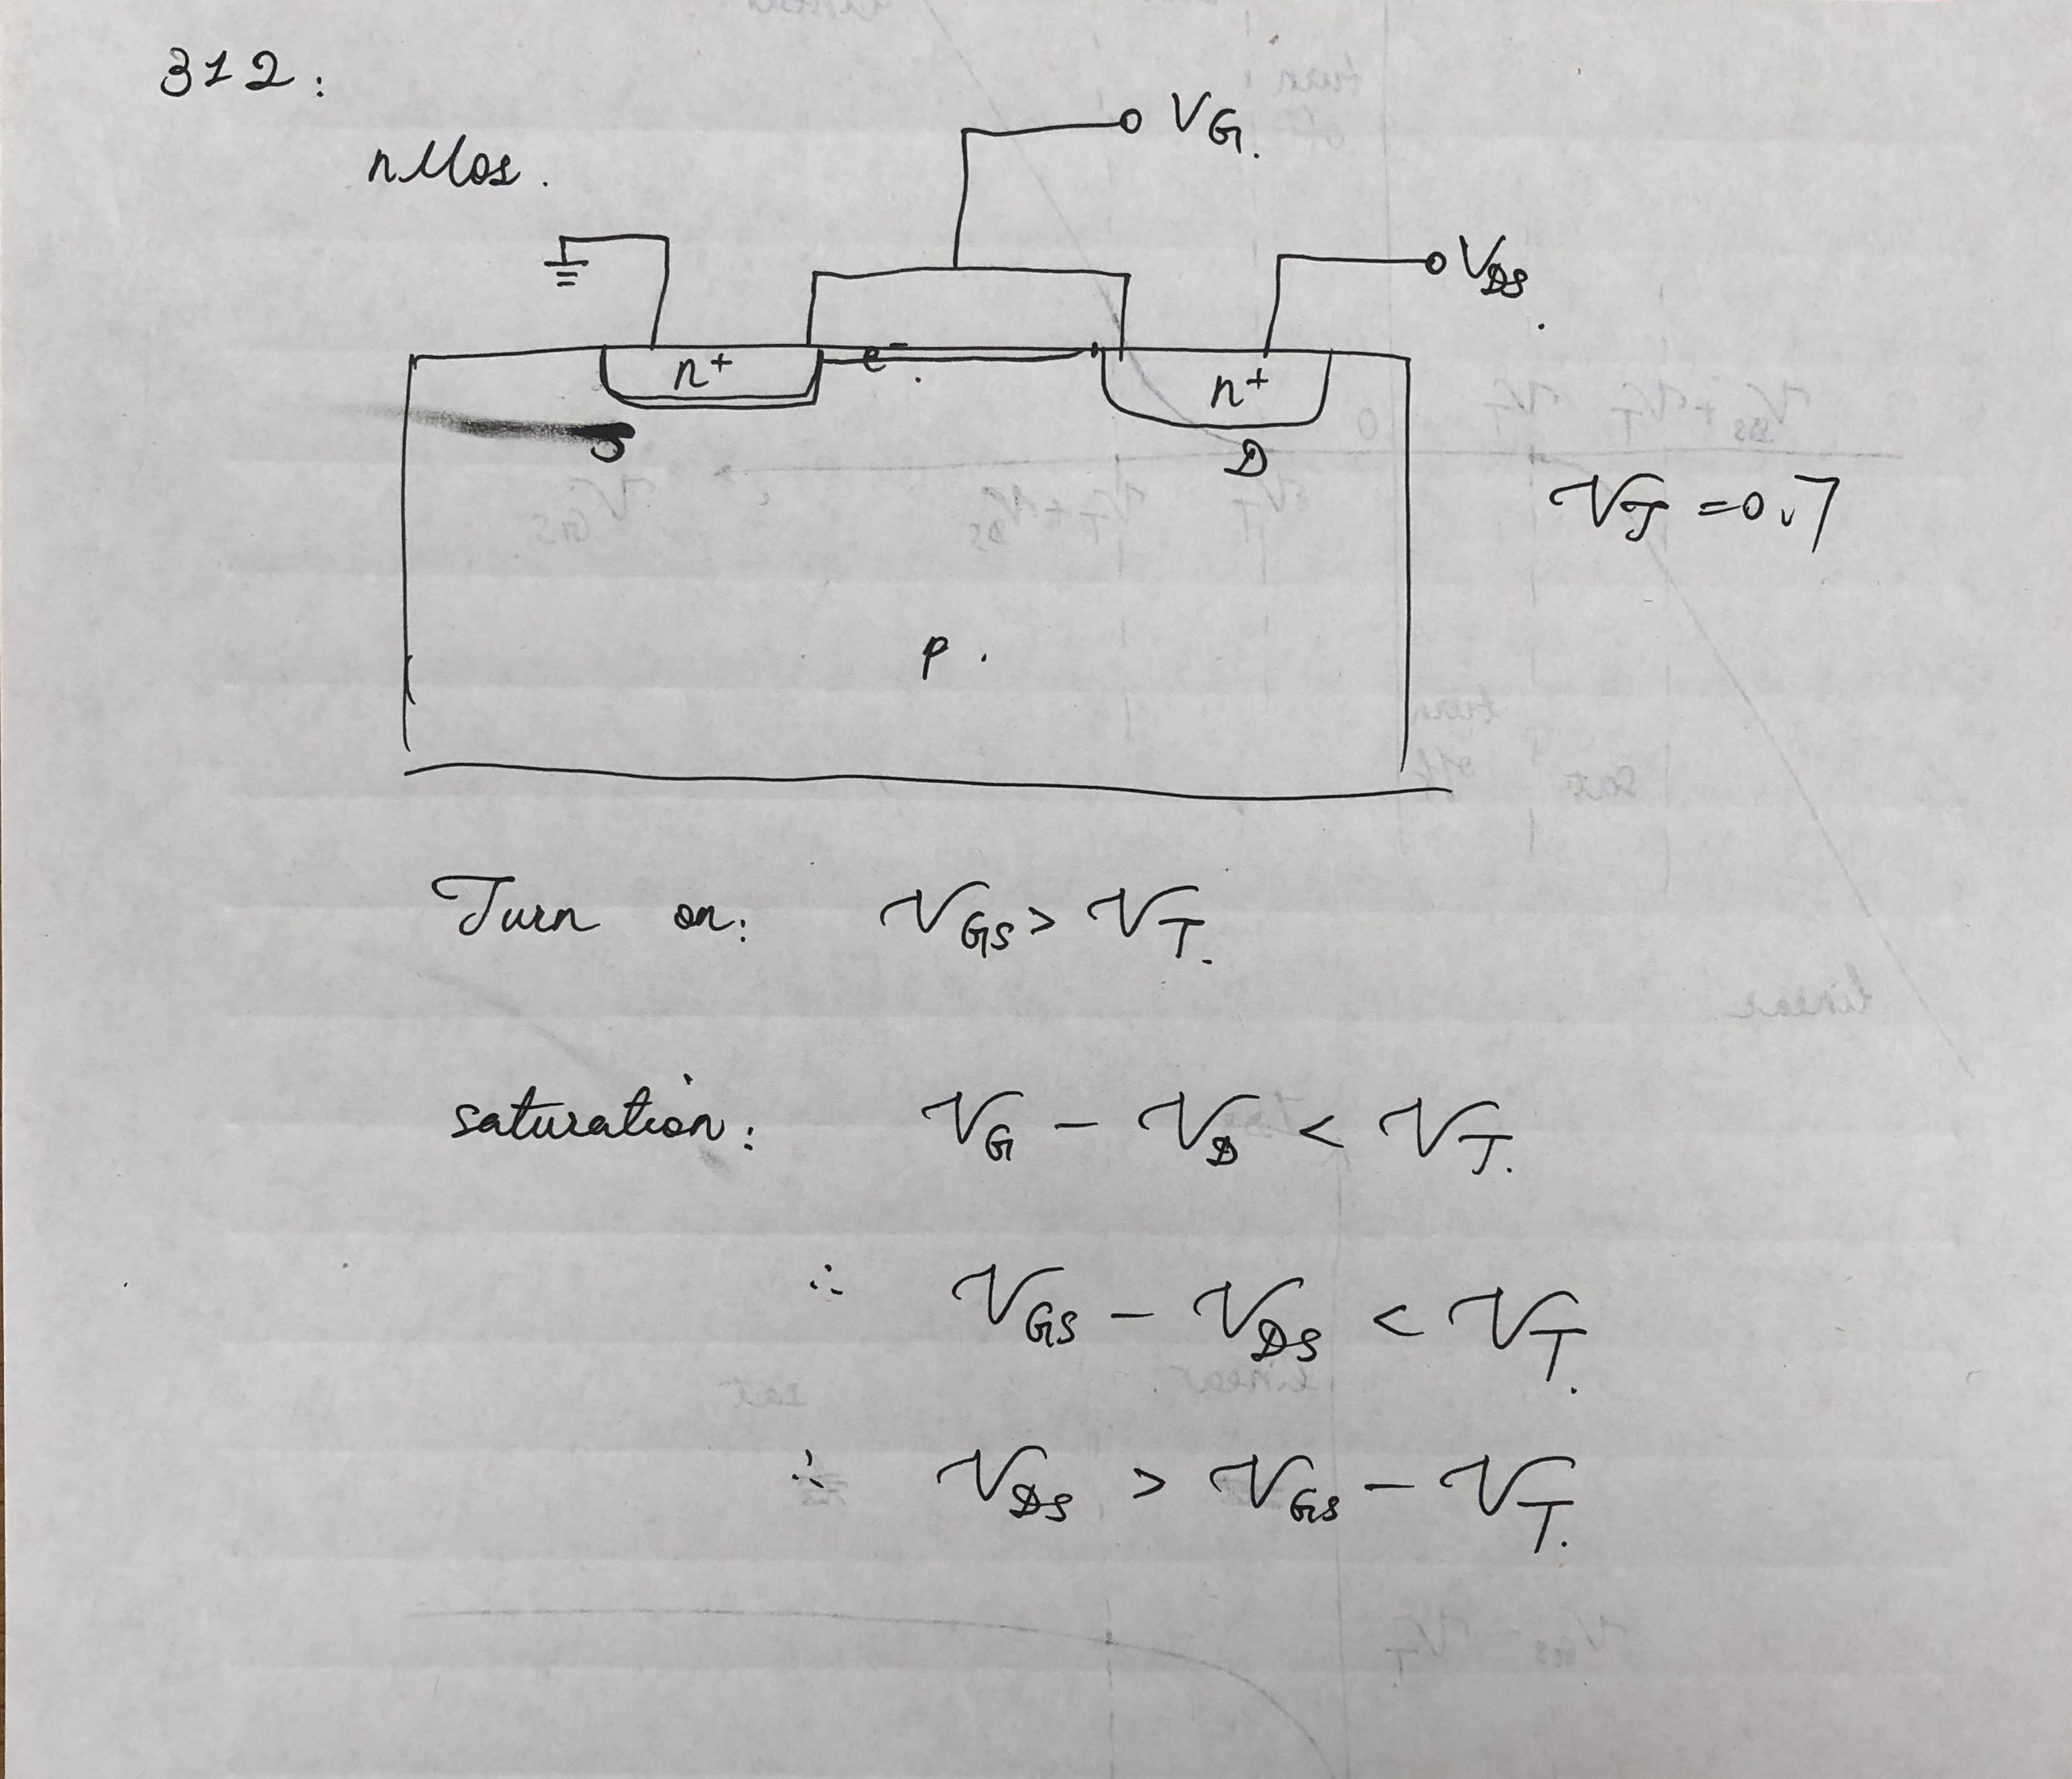 312:
nMos.
V_G.
V_DS.
n+ e-. n+
S D
V_T = 0.7
p.
Turn on: V_GS > V_T.
saturation: V_G - V_D < V_T.
∴ V_GS - V_DS < V_T.
∴ V_DS > V_GS - V_T.